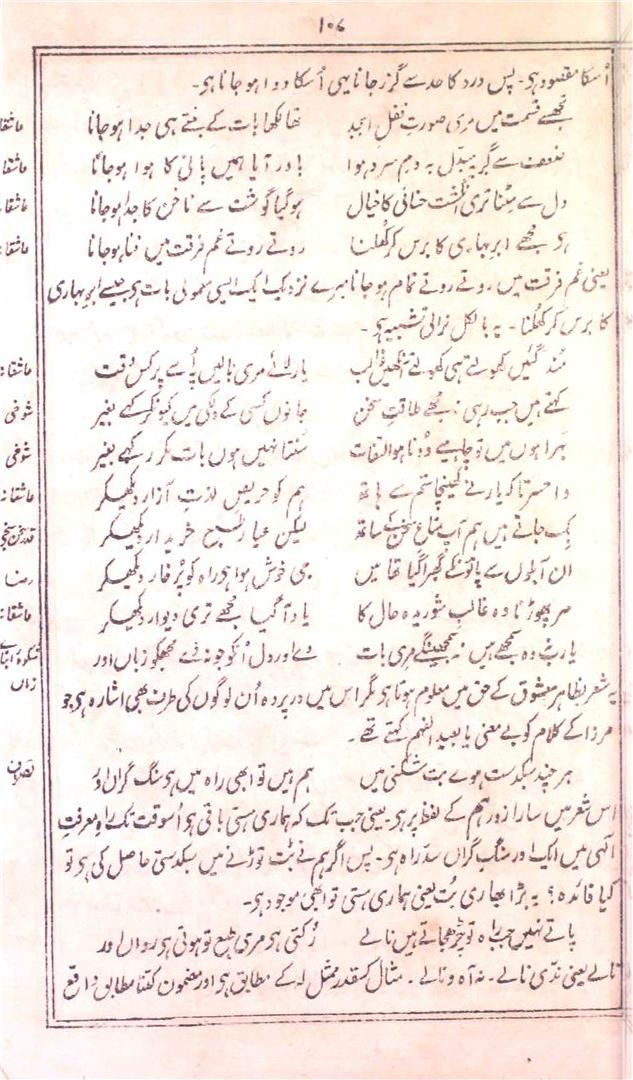 ۱۰۷
اُسکا مقصود ہی۔ پس درد کا حد سے گزر جانا یہی اُسکا دوا ہو جانا ہی۔
تجھسے قسمت میں مری صورتِ قفل ابجد تھا لکھا بات کے بنتے ہی جدا ہو جانا
ضعف سے گریہ مبدّل بہ دمِ سرد ہوا باور آیا ہمیں پانی کا ہوا ہو جانا عاشقا
دل سے مٹنا تری انگشت حنائی کا خیال ہو گیا گوشت سے ناخن کا جدا ہو جانا عاشقا
ہی مجھے ابر بہاری کا برس کر کھلنا روتے روتے غم فرقت میں فنا ہو جانا عاشقا
یعنی غم فرقت میں روتے روتے تمام ہو جانا میرے نزدیک ایک ایسی معمولی بات ہی جیسے ابر بہاری
کا برس کر کھلنا۔ یہ بالکل نرالی تشبیہ ہی۔
مُند گئیں کھولتے ہی کھولتے آنکھیں غالب یار لائے مری بالیں پہ اُسے پر کس وقت
کہتے ہیں جب رہی نہ مجھے طاقتِ سخن جانوں کسی کے دل کی میں کیونکر کہے بغیر شوخی
بہرا ہوں میں تو چاہیے دونا ہو التفات سنتا نہیں ہوں بات مکرر کہے بغیر شوخی
واحسرتا کہ یار نے کھینچا ستم سے ہاتھ ہم کو حریصِ لذتِ آزار دیکھیکر عاشقانہ
بِک جاتے ہیں ہم آپ متاعِ سخن کے ساتھ لیکن عیارِ طبعِ خریدار دیکھیکر
ان آبلوں سے پانوکے گھبرا گیا تھا میں جی خوش ہوا ہی راہ کو پُر خار دیکھیکر
سر پھوڑنا وہ غالبِ شوریدہ حال کا یاد آگیا مجھے تری دیوار دیکھیکر
یارب وہ نہ سمجھے ہیں نہ سمجھینگے مری بات دے اور دل اُنکو جو نہ دے مجھکو زباں اور
یہ شعر بظاہر معشوق کے حق میں معلوم ہوتا ہی مگر اس میں درپردہ اُن لوگوں کی طرف بھی اشارہ ہی جو
مرزا کے کلام کو بے معنی یا بعید الفہم کہتے تھے۔
ہر چند سبکدست ہوے بت شکنی میں ہم ہیں تو ابھی راہ میں ہی سنگ گراں اور
اس شعر میں سارا زور ہم کے لفظ پر ہی۔ یعنی جب تک کہ ہماری ہستی باقی ہی اُسوقت تک راہِ معرفتِ
الٰہی میں ایک اور سنگِ گراں سدّ راہ ہی۔ پس اگر ہم نے بُت توڑنے میں سبکدستی حاصل کی ہی تو
کیا فائدہ؟ یہ بڑا بھاری بُت یعنی ہماری ہستی تو ابھی موجود ہی۔
پاتے نہیں جب راہ تو چڑھ جاتے ہیں نالے رُکتی ہی مری طبع تو ہوتی ہی رواں اور
نالے یعنی ندی نالے۔ نہ آہ و نالے۔ مثال کسقدر ممثل لہ کے مطابق ہی اور مضمون کتنا مطابق واقع